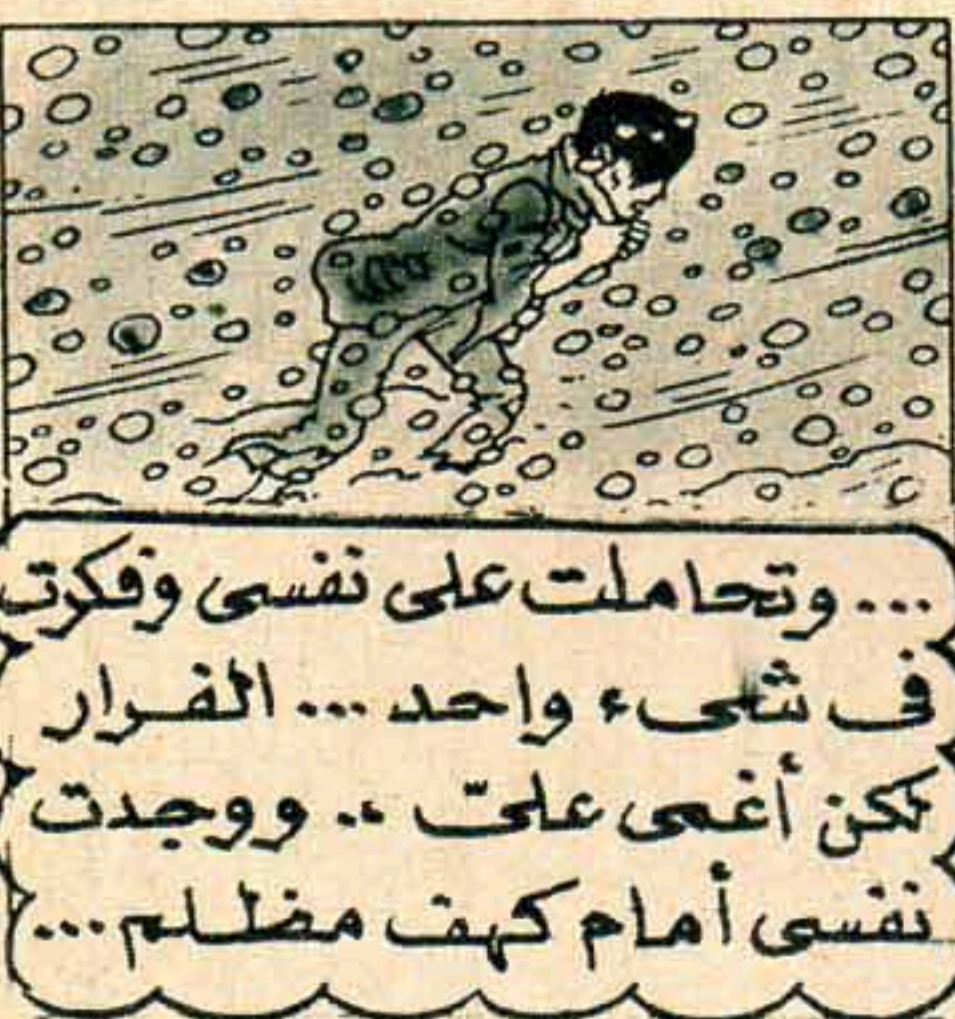 ... وتحاملت على نفسى وفكرت
فى شىء واحد ... الفرار
لكن أغمى علىّ .. ووجدت
نفسى أمام كهف مظلم ...